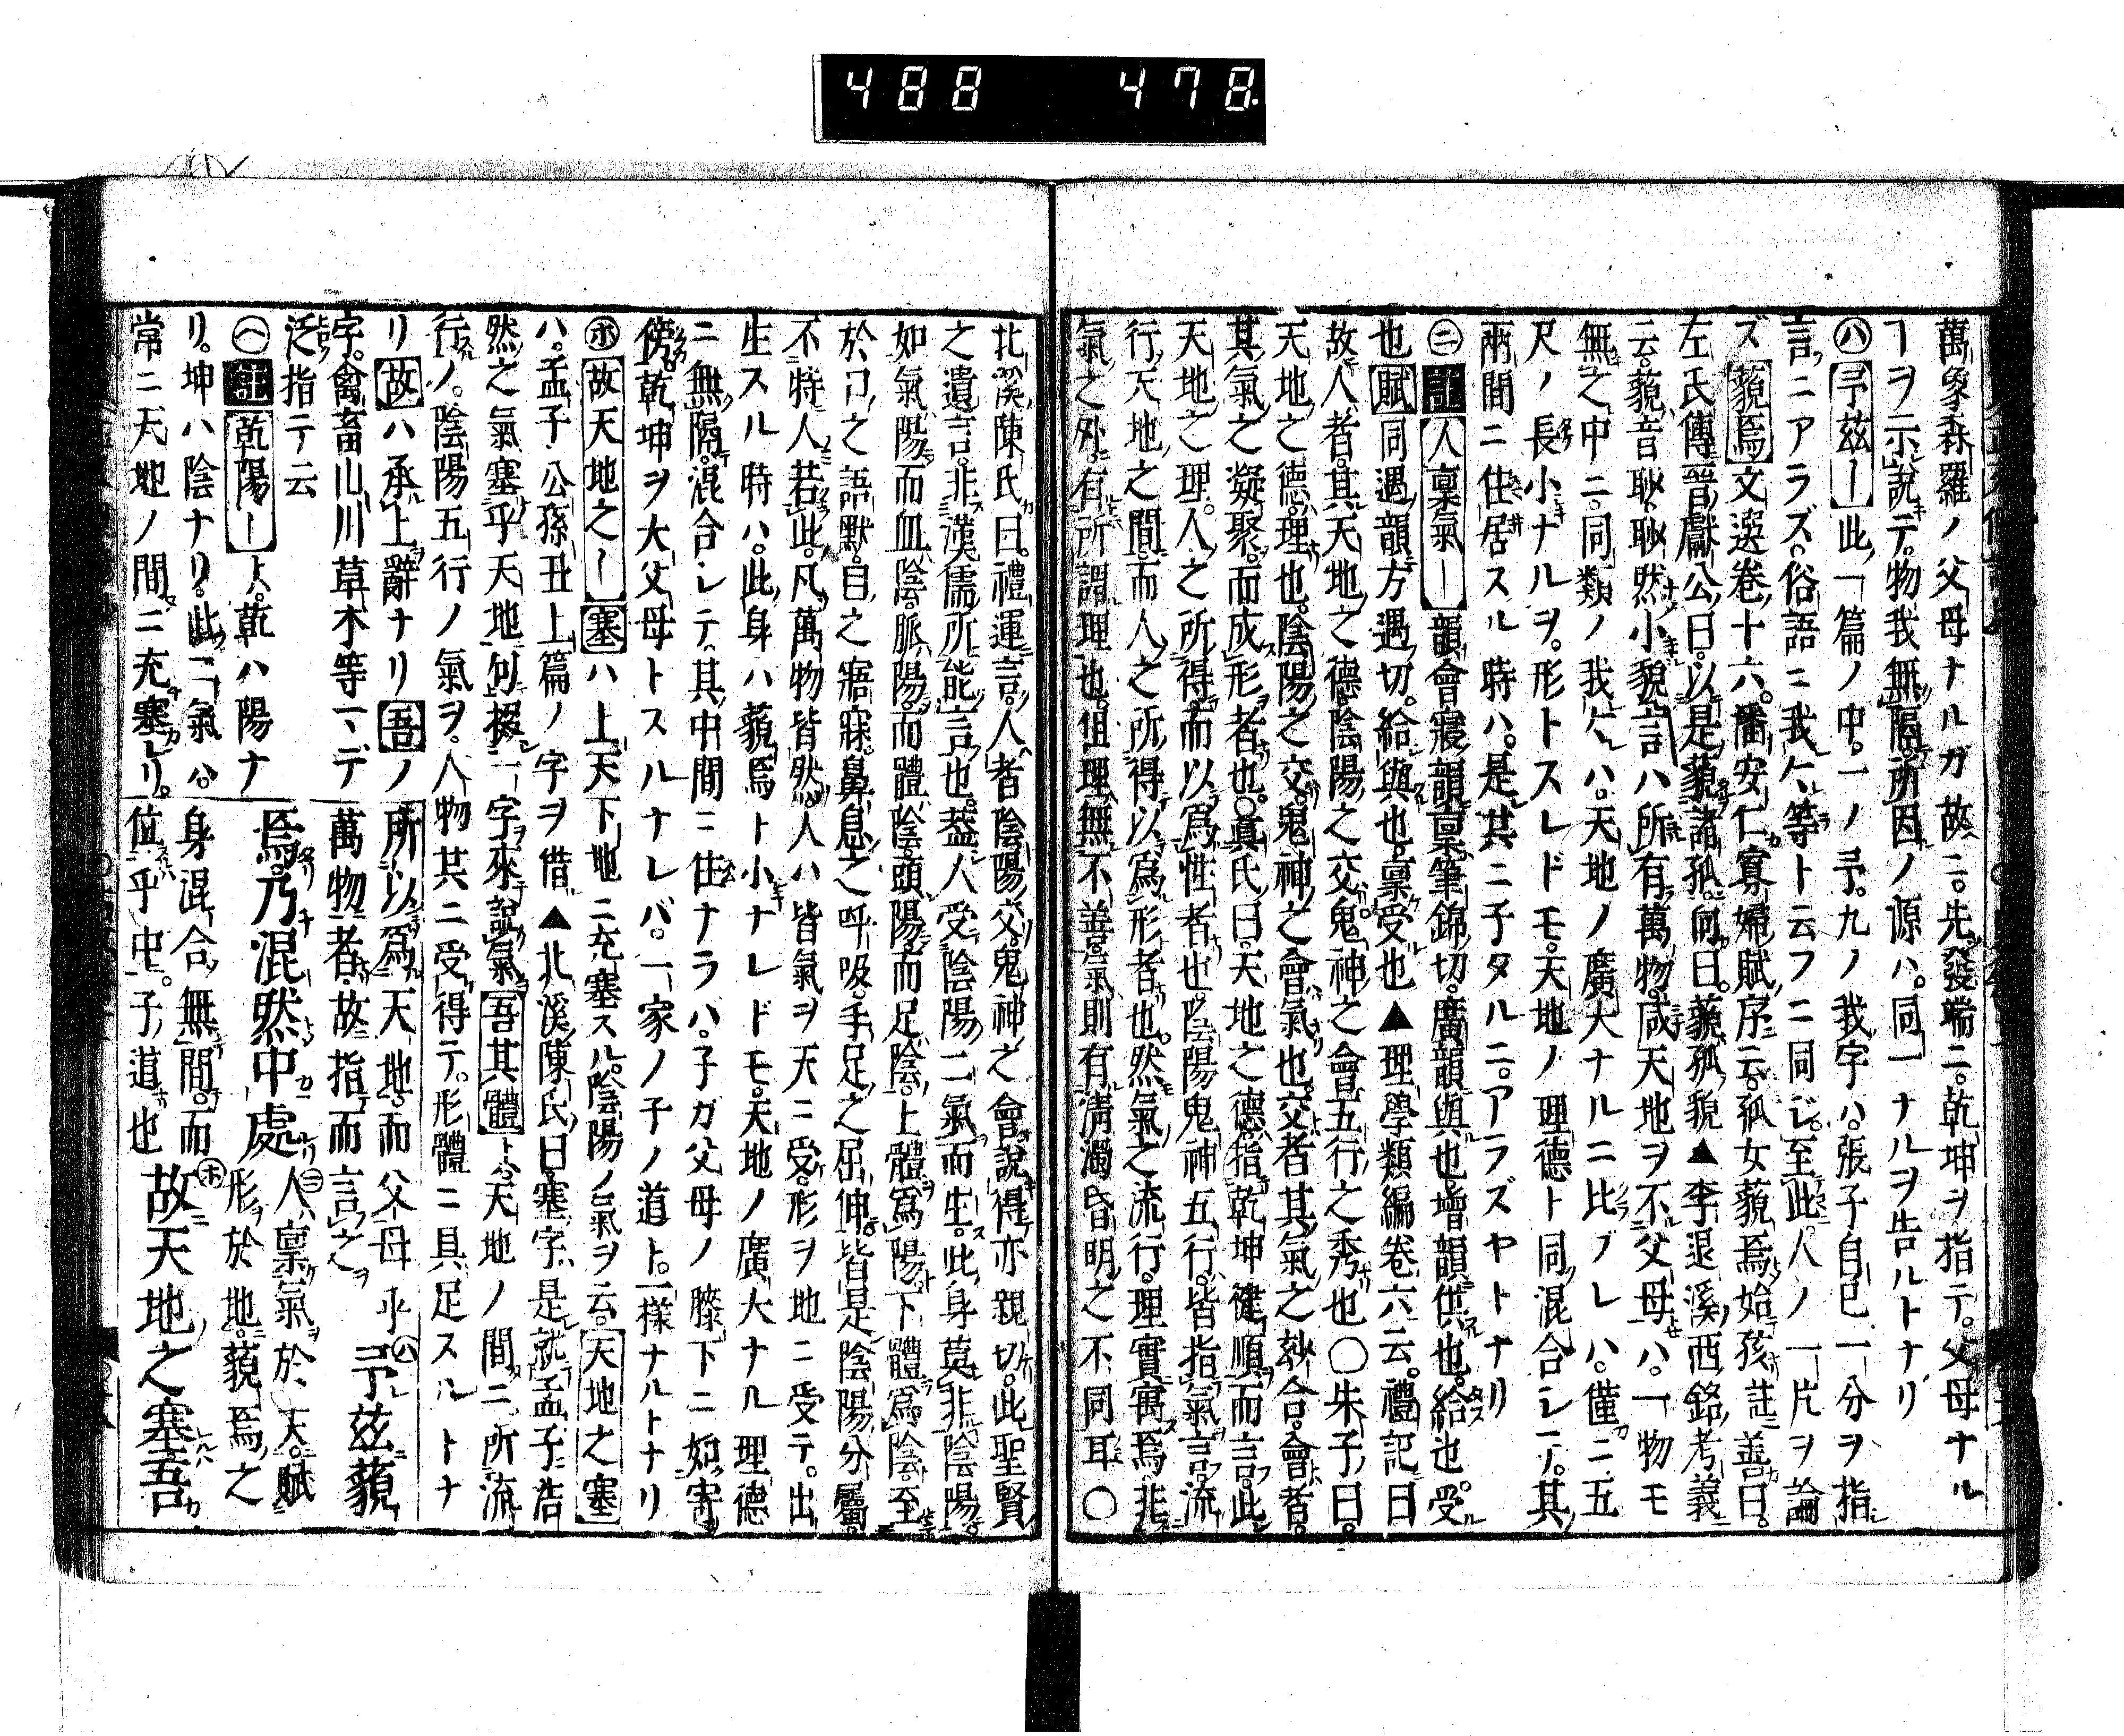 488 478
萬象森羅ノ父母ナルガ故ニ。先發端ニ。乾坤ヲ指テ。父母ナル
ヿヲ示説テ。物我無隔。所因ノ源ハ。同一ナルヲ告ルトナリ
㋩予茲｜此一篇ノ中。一ノ予。九ノ我字ハ。張子自己一分ヲ指
言ニアラズ。俗語ニ我人等ト云フニ同ジ。至此。人ノ一片ヲ論
ズ藐焉文選卷十六。潘安仁寡婦賦序云。孤女藐焉始孩註善曰。
左氏傳晉獻公曰。以是藐諸孤。何曰。藐孤貌▲李退溪西銘考義
云。藐音眇。眇然小貌言ハ所有萬物。咸天地ヲ不父母ハ。一物モ
無之中ニ。同類ノ我人ハ。天地ノ廣大ナルニ比ブレハ。僅ニ五
尺ノ長小ナルヲ。形トスレドモ。天地ノ理德ト同混合シテ。其
兩間ニ住居スル時ハ。是其ニ子タルニ。アラズヤトナリ
㊁註人稟氣｜韻會寢韻稟筆錦切。廣韻與也。增韻供也。給也。受
也賦同遇韻方遇切。給與也。稟受也▲理學類編卷六云。禮記曰
故人者。其天地之德。陰陽之交。鬼神之會。五行之秀也〇朱子曰。
天地之德。理也。陰陽之交。鬼神之會。氣也。交者其氣之妙合。會者。
其氣之凝聚。而成形者也。〇眞氏曰。天地之德。指乾坤健順而言。此
天地之理。人之所得。而以爲性者也。陰陽鬼神五行。皆指氣言。流
行天地之間。而人之所得以爲形者也。然氣之流行。理實寓焉。非
氣之外有所謂理也。但理無不善。氣則有淸濁昏明之不同耳〇
北溪陳氏曰。禮運言。人者陰陽交。鬼神之會。說得亦親切。此聖賢
之遺言。非漢儒所能言也。蓋人受陰陽二氣而生。此身莫非陰陽。
如氣陽而血陰。脈陽。而體陰。頭陽。而足陰。上體爲陽。下體爲陰。至
於口之語默。目之寤寐。鼻息之呼吸。手足之屈伸。皆是陰陽。分屬。
不特人若此。凡萬物皆然。人ハ皆氣ヲ天ニ受。形ヲ地ニ受テ。出
生スル時ハ。此身ハ藐焉ト小ナレドモ。天地ノ廣大ナル理德
ニ無隔。混合シテ。其中間ニ住ナラハ。子ガ父母ノ膝下ニ如寄
傍。乾坤ヲ大父母トスルナレバ。一家ノ子ノ道ト。一樣ナルトナリ
㋭故天地之｜塞ハ上天下地ニ充塞スル。陰陽ノ氣ヲ云。天地之塞
ハ。孟子公孫丑上篇ノ字ヲ借▲北溪陳氏曰。塞字是就孟子浩
然之氣塞乎天地句掇一字來說氣吾其體ト。天地ノ間ニ所流
行ノ。陰陽五行ノ氣ヲ。人物其ニ受得テ。形體ニ具足スルトナ
リ故ハ承上辭ナリ吾ノ
字。禽畜山川草木等マデ
泛指テ云
㋬註乾陽｜ト。乾ハ陽ナ
リ。坤ハ陰ナリ。此二氣ハ。
常ニ天地ノ間ニ充塞レリ。
所以爲天地。而父母乎㋩予茲藐
萬物者。故指而言之
焉。乃混然中處㊁人稟氣於天。賦
形於地。藐焉之
身混合無間。而
位乎中。子道也㋭故天地之塞吾